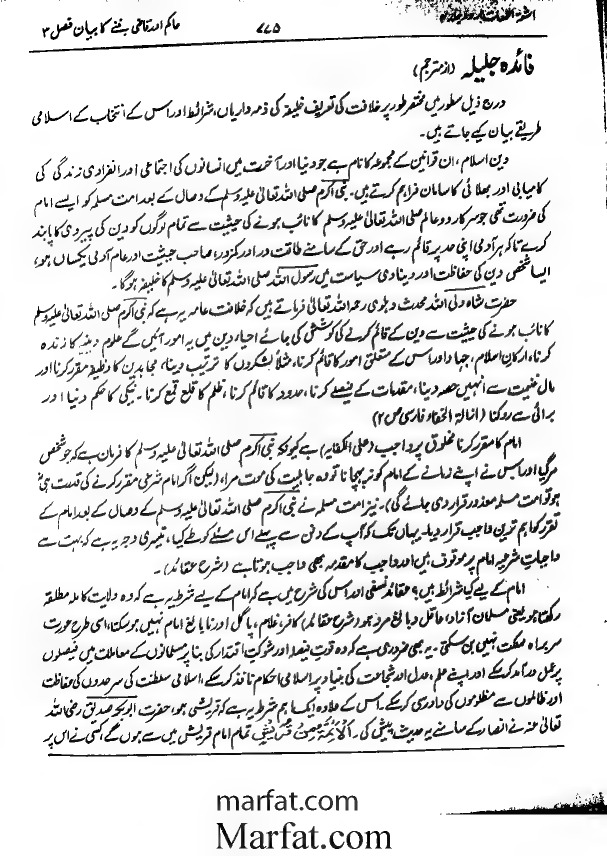 اشعۃ اللمعات اردو جلد پنجم
۷۷۵
حاکم اور قاضی بننے کا بیان فصل ۳
فائدہ جلیلہ (از مترجم)
درج ذیل سطور میں مختصر طور پر خلافت کی تعریف خلیفہ کی ذمہ داریاں، شرائط اور اس کے انتخاب کے اسلامی
طریقے بیان کیے جاتے ہیں۔
دین اسلام، ان قوانین کے مجموعہ کا نام ہے جو دنیا اور آخرت میں انسانوں کی اجتماعی اور انفرادی زندگی کی
کامیابی اور بھلائی کا سامان فراہم کرتے ہیں۔ نبی اکرم صلی اللہ تعالیٰ علیہ وسلم کے وصال کے بعد امت مسلمہ کو ایسے امام
کی ضرورت تھی جو سرکار دو عالم صلی اللہ تعالیٰ علیہ وسلم کا نائب ہونے کی حیثیت سے تمام لوگوں کو دین کی پیروی کا پابند
کرے تاکہ ہر آدمی اپنی حد پر قائم رہے اور حق کے سامنے طاقت ور اور کمزور، صاحب حیثیت اور عام آدمی یکساں ہو،
ایسا شخص دین کی حفاظت اور دیناوی سیاست میں رسول اللہ صلی اللہ تعالیٰ علیہ وسلم کا خلیفہ ہوگا۔
حضرت شاہ ولی اللہ محدث دہلوی رحمہ اللہ تعالیٰ فرماتے ہیں کہ خلافت عامہ یہ ہے کہ نبی اکرم صلی اللہ تعالیٰ علیہ وسلم
کا نائب ہونے کی حیثیت سے دین کے قائم کرنے کی کوشش کی جائے احیاء دین میں یہ امور آئیں گے علوم دینیہ کا زندہ
کرنا، ارکان اسلام، جہاد اور اس کے متعلق امور کا قائم کرنا، مثلاً لشکروں کا ترتیب دینا، مجاہدین کا وظیفہ مقرر کرنا اور
مال غنیمت سے انہیں حصہ دینا، مقدمات کے فیصلے کرنا، حدود کا قائم کرنا، ظلم کا قلع قمع کرنا۔ نیکی کا حکم دینا اور
برائی سے روکنا (ازالۃ الخفاء فارسی ص ۲)
امام کا مقرر کرنا مخلوق پر واجب (علی الکفایہ) ہے کیونکہ نبی اکرم صلی اللہ تعالیٰ علیہ وسلم کا فرمان ہے کہ جو شخص
مر گیا اور اس نے اپنے زمانے کے امام کو نہ پہچانا تو وہ جاہلیت کی موت مرا، (لیکن اگر امام شرعی مقرر کرنے کی قدرت ہی نہ
ہو تو امت مسلمہ معذور قرار دی جائے گی)۔ نیز امت مسلمہ نے نبی اکرم صلی اللہ تعالیٰ علیہ وسلم کے وصال کے بعد امام کے
تقرر کو اہم ترین واجب قرار دیا۔ یہاں تک کہ آپ کے دفن سے پہلے اس مسئلے کو طے کیا، تیسری وجہ یہ ہے کہ بہت سے
واجبات شرعیہ امام پر موقوف ہیں اور واجب کا مقدمہ بھی واجب ہوتا ہے (شرح عقائد)۔
امام کے لیے کیا شرائط ہیں؟ عقائد نسفی اور اس کی شرح میں ہے کہ امام کے لیے شرط یہ ہے کہ وہ ولایت کاملہ مطلقہ
رکھتا ہو یعنی مسلمان آزاد، عاقل و بالغ مرد ہو (شرح عقائد) کافر، غلام، پاگل اور نابالغ امام نہیں ہو سکتا، اسی طرح عورت
سربراہ مملکت نہیں بن سکتی۔ یہ بھی ضروری ہے کہ وہ قوت فیصلہ اور شوکت اقتدار کی بنا پر مسلمانوں کے معاملات میں فیصلوں
پر عمل درآمد کرا سکے اور اپنے علم، عدل اور شجاعت کی بنیاد پر اسلامی احکام نافذ کر سکے، اسلامی سلطنت کی سرحدوں کی حفاظت
اور ظالموں سے مظلوموں کی داد رسی کر سکے۔ اس کے علاوہ ایک اہم شرط یہ ہے کہ قریشی ہو، حضرت ابوبکر صدیق رضی اللہ
تعالیٰ عنہ نے انصار کے سامنے یہ حدیث پیش کی۔ اَلْاَئِمَّةُ مِنْ قُرَيْشٍ تمام امام قریش میں سے ہوں گے، کسی نے اس پر
marfat.com
Marfat.com